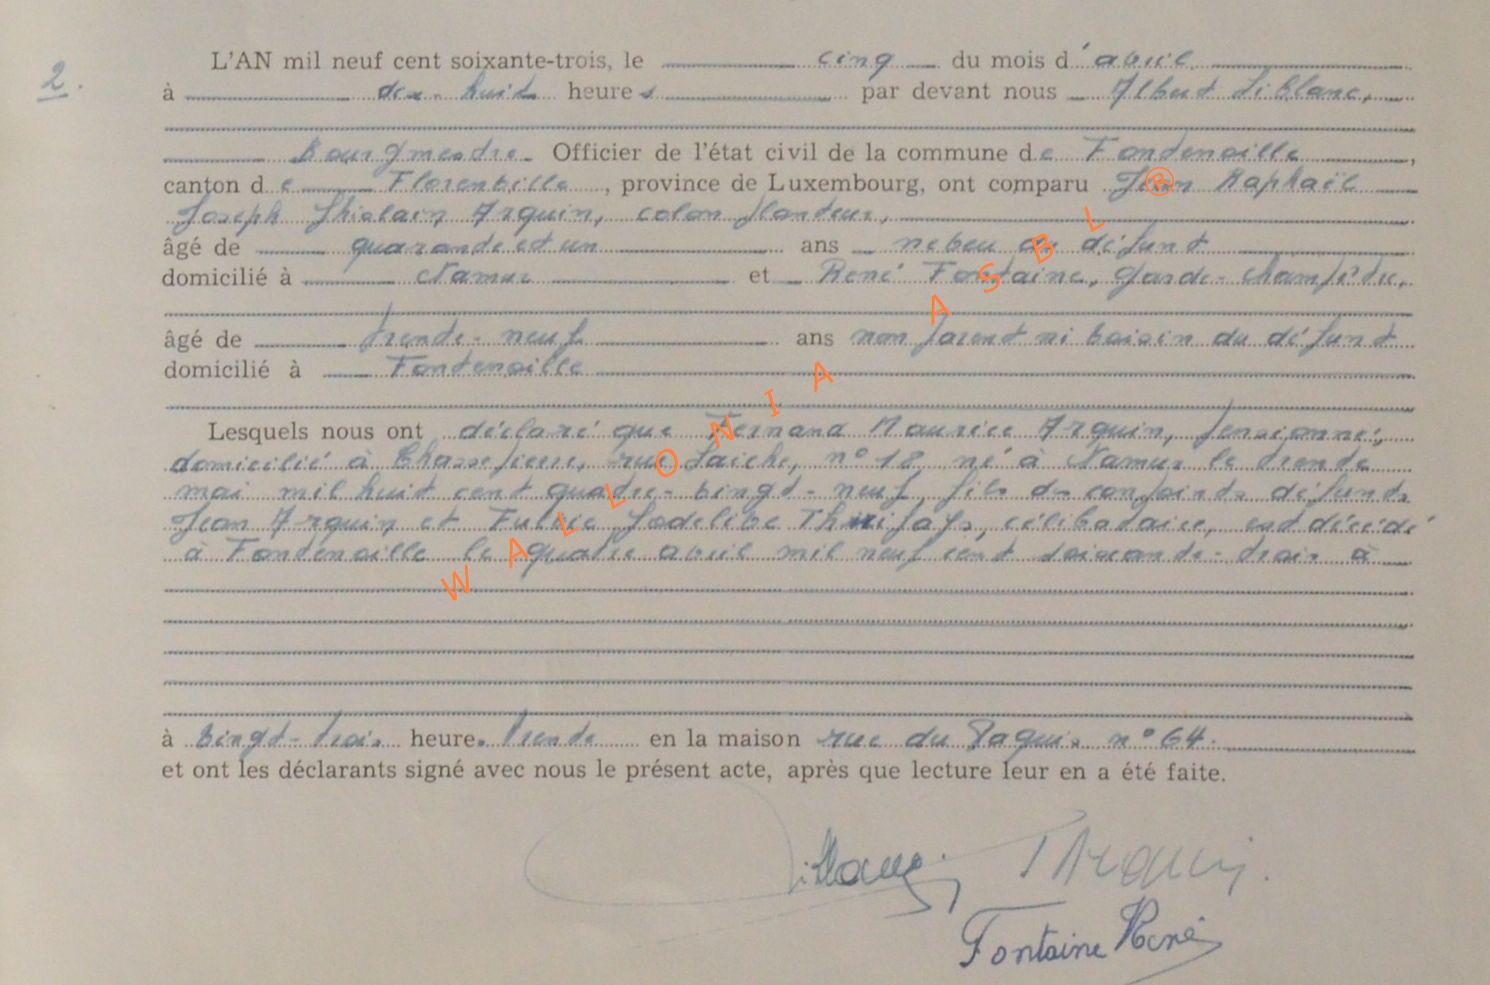 2.
L'AN mil neuf cent soixante-trois, le cinq du mois d'avril
à dix-huit heures par devant nous Albert Leblanc,
Bourgmestre Officier de l'état civil de la commune de Fontenoille,
canton de Florenville, province de Luxembourg, ont comparu Jean Raphaël
Joseph Ghislain Arquin, colon planteur,
âgé de quarante et un ans neveu du défunt
domicilié à Namur et René Fontaine, garde-champêtre,
âgé de trente-neuf ans non parent ni voisin du défunt
domicilié à Fontenoille
Lesquels nous ont déclaré que Fernand Maurice Arquin, pensionné,
domicilié à Chassepierre, rue Laiche, n° 18, né à Namur le trente
mai mil huit cent quatre-vingt-neuf, fils des conjoints défunts
Jean Arquin et Fulvie Godelive, célibataire, est décédé
à Fontenoille le quatre avril mil neuf cent soixante-trois à
à vingt-trois heures trente en la maison rue du Paquis n° 64.
et ont les déclarants signé avec nous le présent acte, après que lecture leur en a été faite.
Leblanc
Arquin
Fontaine René
WALLONIA ASBL ®